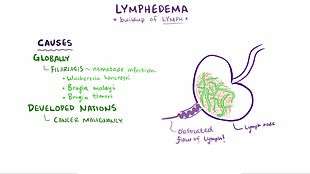 LYMPHEDEMA
* buildup of LYMPH *
CAUSES
GLOBALLY
FILARIASIS ~ nematode infection
* Wuchereria bancrofti
* Brugia malayi
* Brugia timori
DEVELOPED NATIONS
CANCER MALIGNANCY
obstructed
flow of lymph!
Lymph node